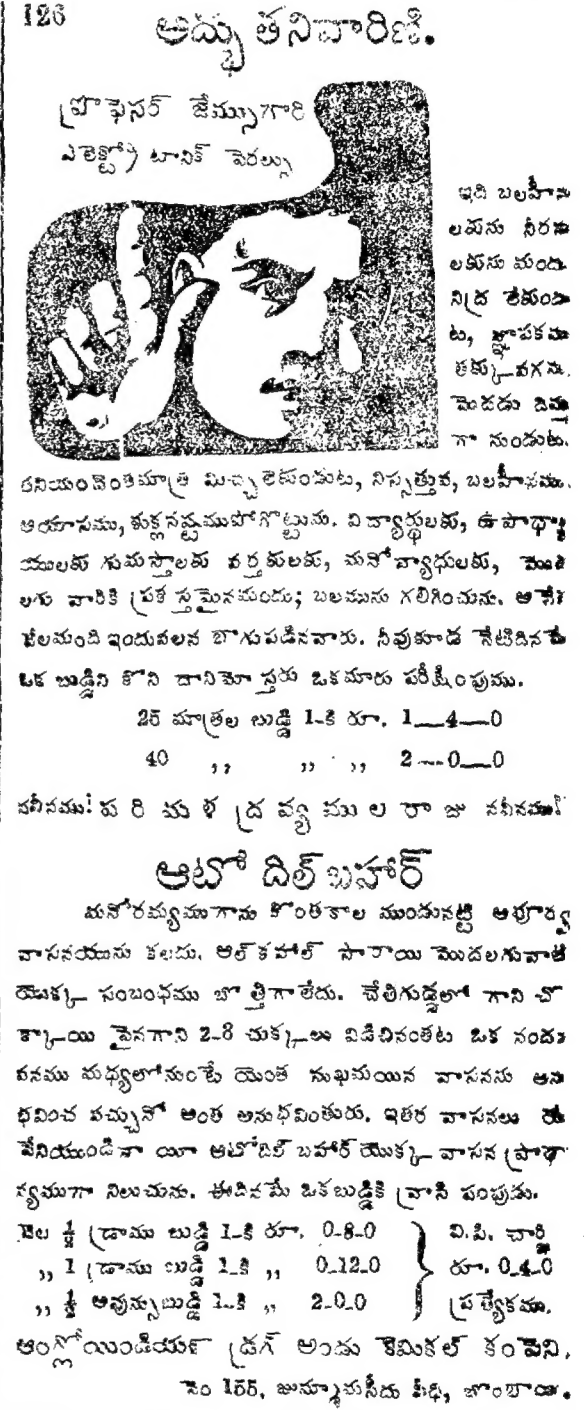 126
అద్భుతనివారిణి.
ప్రొఫెసర్ జేమ్సుగారి
ఎలెక్ట్రో టానిక్ పెరల్సు
ఇది బలహీన
లకును నీరస
లకును మందు.
నిద్ర లేకుండు
ట, జ్ఞాపకము
తక్కువగను,
మెదడు దిమ్మ
గా నుండుట,
పనియందెంతమాత్ర మిచ్చలేకుండుట, నిస్సత్తువ, బలహీనము,
ఆయాసము, శుక్లనష్టముపోగొట్టును. విద్యార్థులకు, ఉపాధ్యా
యులకు గుమస్తాలకు వర్తకులకు, మనోవ్యాధులకు, మొద
లగు వారికి ప్రశస్తమైనమందు; బలమును గలిగించును. అనేక
వేలమంది ఇందువలన బాగుపడినవారు. నీవుకూడ నేటిదినమే
ఒక బుడ్డిని కొని దానిమో స్తరు ఒకమారు పరీక్షింపుము.
25 మాత్రల బుడ్డి 1-కి రూ. 1—4—0
40 ,, ,, ,, 2—0—0
నవీనము! ప రి మ ళ ద్ర వ్య ము ల రా జు నవీనము!
ఆటో దిల్ బహార్
మనోరమ్యముగాను కొంతకాల ముండునట్టి అపూర్వ
వాసనయును కలదు. ఆల్ కహాల్ సారాయి మొదలగువాటి
యొక్క సంబంధము బొత్తిగాలేదు. చేతిగుడ్డలో గాని చొ
క్కాయి పైనగాని 2-3 చుక్కలు విడిచినంతట ఒక నందన
వనము మధ్యలోనుంటే యెంత సుఖమయిన వాసనను అను
భవించ వచ్చునో అంత అనుభవింతురు. ఇతర వాసనలు యే
వేనియుండినా యీ ఆటోదిల్ బహార్ యొక్క వాసన ప్రాధా
న్యముగా నిలుచును. ఈదినమే ఒకబుడ్డికి వ్రాసి పంపుడు.
వెల ½ డ్రాము బుడ్డి 1-కి రూ. 0-8-0 వి.పి. చార్జి
,, 1 డ్రాము బుడ్డి 1-కి ,, 0-12-0 రూ. 0-4-0
,, ½ అవున్సుబుడ్డి 1-కి ,, 2-0-0 ప్రత్యేకము.
ఆంగ్లోయిండియన్ డ్రగ్ అండు కెమికల్ కంపెని,
నెం 155, జుమ్మామసీదు వీధి, బొంబాయి.